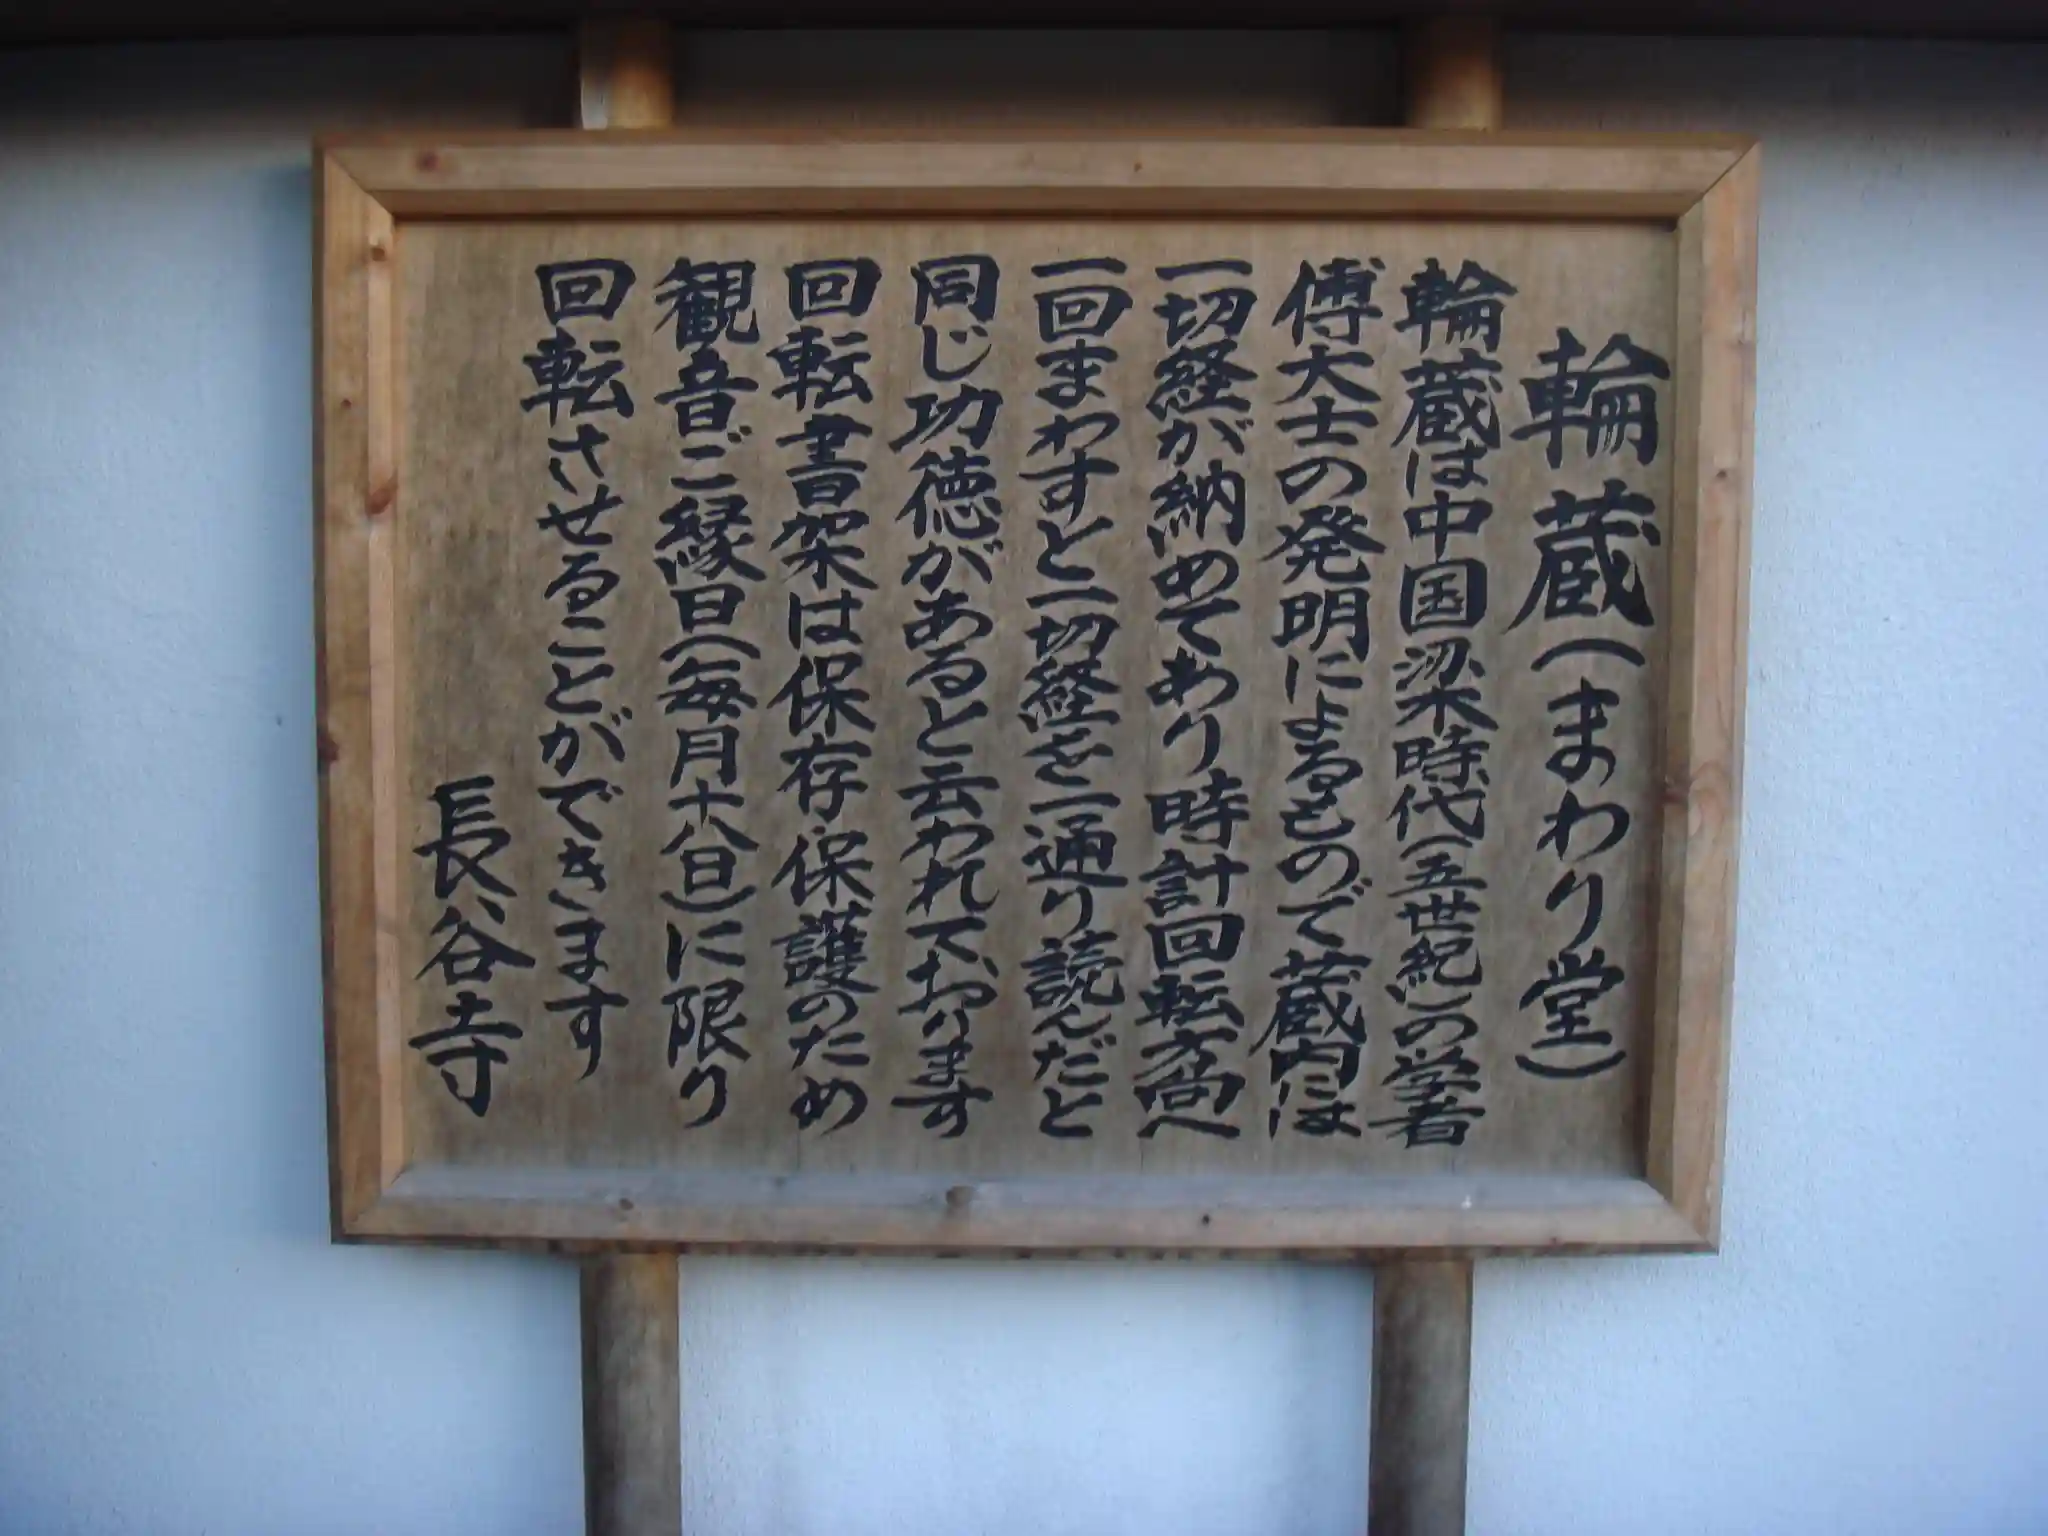 輪蔵(まわり堂)
輪蔵は中国梁時代(五世紀)の学者
傅大士の発明によるもので蔵内には
一切経が納めてあり時計回転方向へ
一回まわすと一切経を一通り読んだと
同じ功徳があると云われております
回転書架は保存保護のため
観音ご縁日(毎月十八日)に限り
回転させることができます
長谷寺